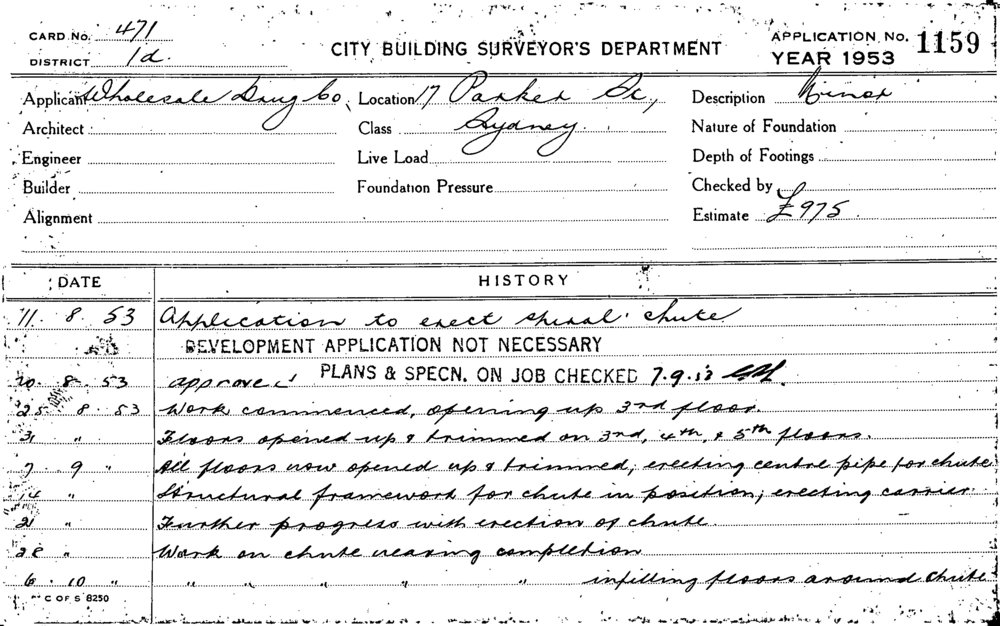 CARD No. 471
DISTRICT 1d.
CITY BUILDING SURVEYOR'S DEPARTMENT
APPLICATION No. 1159
YEAR 1953
Applicant Wholesale Drug Co. Location 17 Parker St., Description Minor
Architect Class Sydney. Nature of Foundation
Engineer Live Load Depth of Footings
Builder Foundation Pressure Checked by
Alignment Estimate £975.
DATE HISTORY
11. 8. 53 Application to erect spiral chute
DEVELOPMENT APPLICATION NOT NECESSARY
20. 8. 53 approved PLANS & SPECN. ON JOB CHECKED 7.9.53
25. 8. 53 Work commenced, opening up 3rd floor.
31 " Floors opened up & trimmed on 3rd, 4th, & 5th floors.
7. 9 " All floors now opened up & trimmed, erecting centre pipe for chute
14 " Structural framework for chute in position, erecting carrier
21 " Further progress with erection of chute.
28 " Work on chute nearing completion
6. 10 " " " " " " infilling floors around chute
C OF S 8250